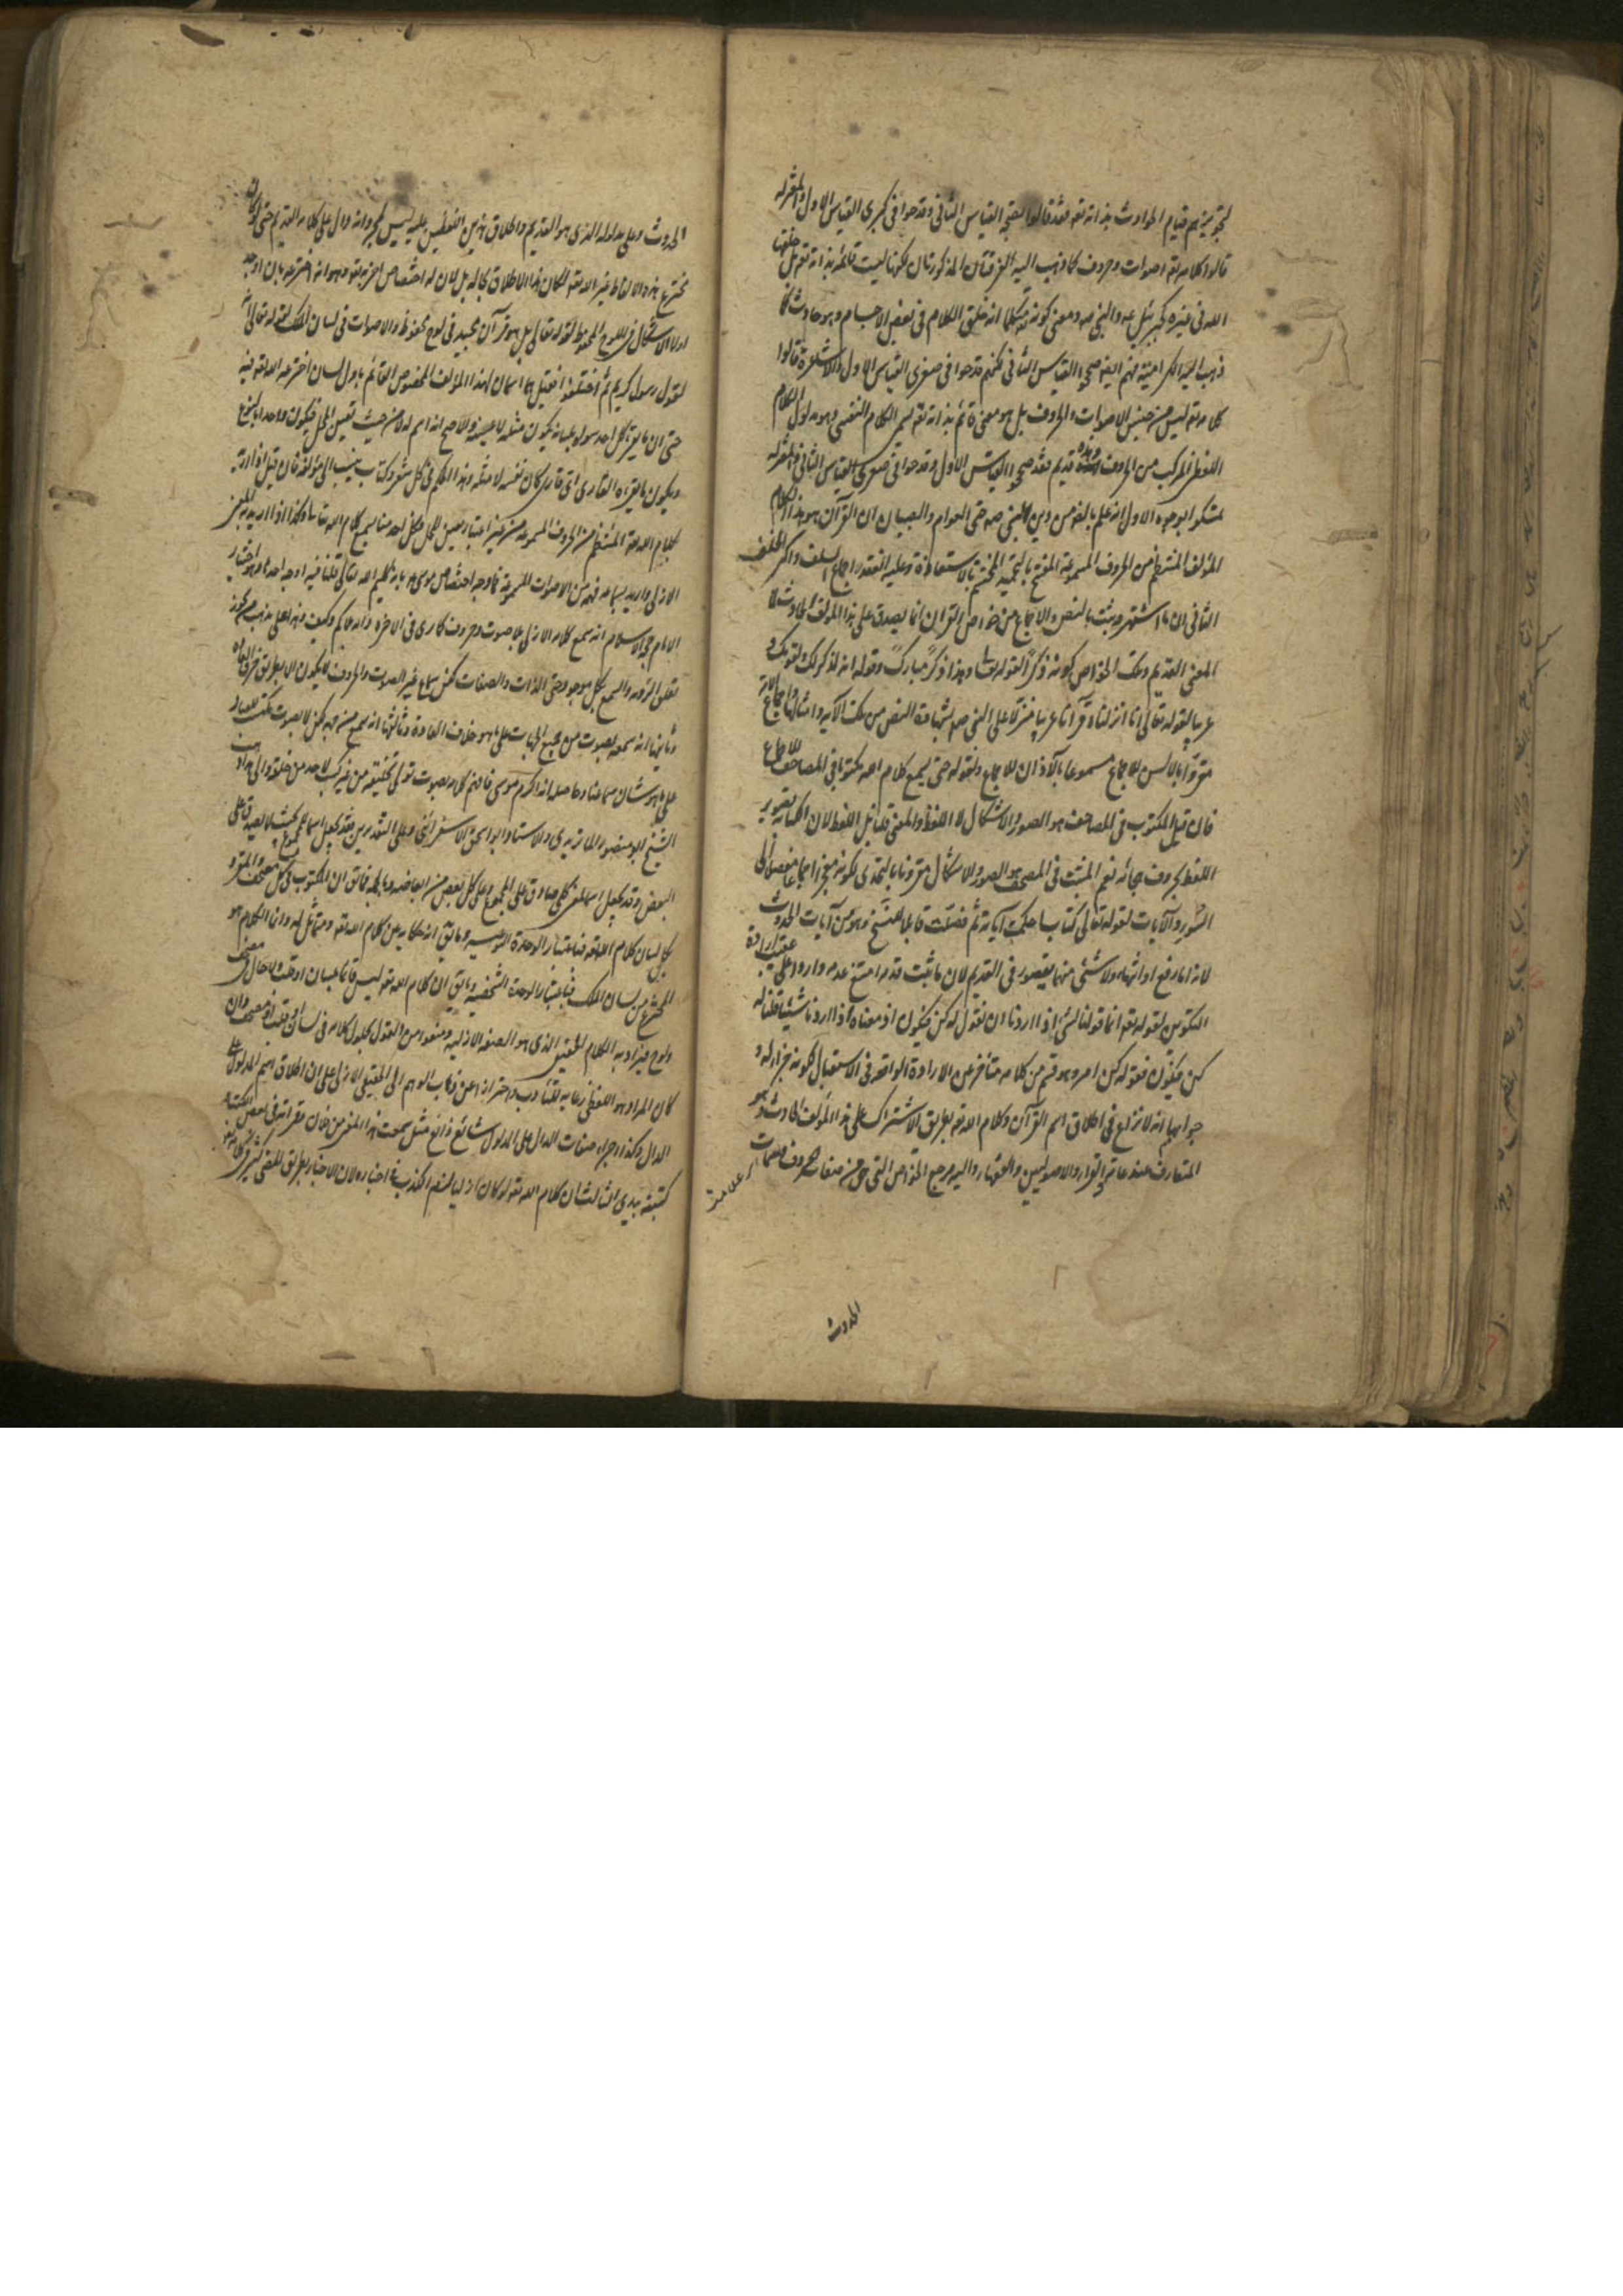 لتجويزهم قيام الحوادث بذاته تعه فقد قالوا بصحة القياس الثاني وقدحوا في كبرى القياس الاول والمعتزلة
قالوا كلامه تعه اصوات وحروف كما ذهب اليه الفرقتان المذكورتان لكنها ليست قائمة بذاته تعه بل خلقها
الله في غيره كجبرئيل عم والنبي صم ومعنى كونه تعه متكلما انه خلق الكلام في بعض الاجسام وهو حادث كما
ذهب اليه الكرامية فهم ايضا صححوا القياس الثاني لكنهم قدحوا في صغرى القياس الاول والاشاعرة قالوا
كلامه تعه ليس من جنس الاصوات والحروف بل هو معنى قائم بذاته تعه يسمى الكلام النفسي وهو مدلول الكلام
اللفظي المركب من الحروف وهو قديم فقد صححوا القياس الاول وقدحوا في صغرى القياس الثاني والمعتزلة
تمسكوا بوجوه الاول انه علم بالضرورة من دين النبي صم حتى العوام والصبيان ان القرآن هو هذا الكلام
المؤلف المنتظم من الحروف المسموعة المفتتح بالتحميد المختتم بالاستعاذة وعليه انعقد اجماع السلف واكثر الخلف
الثاني ان ما اشتهر وثبت بالنص والاجماع من خواص القرآن انما يصدق على هذا المؤلف الحادث لا
المعنى القديم وتلك الخواص كونه ذكرا لقوله تعا وهذا ذكر مبارك وقوله انه لذكر لك ولقومك و
عربيا لقوله تعالى انا انزلناه قرآنا عربيا منزلا على النبي صم بشهادة النص من تلك الآية وامثالها والاجماع
مقروّا بالالسن للاجماع مسموعا بالآذان للاجماع ولقوله حتى يسمع كلام الله مكتوبا في المصاحف للاجماع
فان قيل المكتوب في المصاحف هو الصور والاشكال لا اللفظ والمعنى قلنا بل اللفظ لان الكتابة تصوير
اللفظ بحروف هجائه نعم المثبت في المصحف هو الصور والاشكال مقرونا بالتحدى لكونه معجزا اجماعا مفصلا الى
السور والآيات لقوله تعالى كتاب احكمت آياته ثم فصلت قابلا للنسخ وهو من آيات الحدوث
لانه اما رفع او انتهاء ولا شئ منهما يتصور في القديم لان ما ثبت قدمه امتنع عدمه واردا عقيب ارادة
التكوين لقوله تعه انما قولنا لشئ اذا اردناه ان نقول له كن فيكون اذ معناه اذا اردنا شيئا قلنا له
كن فيكون فقوله كن امر وهو قسم من كلامه متأخر عن الارادة الواقعة في الاستقبال لكونه جزاء له و
جوابهما انه لا نزاع في اطلاق اسم القرآن وكلام الله تعه بطريق الاشتراك على هذا المؤلف الحادث وهو
المتعارف عند عامة القراء والاصوليين والفقهاء واليه مرجع الخواص التي هي من صفات الحروف وسمات
الحدوث
الحدوث وعلى مدلوله الذى هو القديم واطلاق هذين اللفظين عليه ليس لمجرد انه دال على كلامه القديم حتى لو كان
مخترع هذه الالفاظ غير الله تعه لكان هذا الاطلاق بحاله بل لان له اختصاص آخر به تعه وهو انه اخترعه بان اوجد
اولا الاشكال في اللوح المحفوظ لقوله تعالى بل هو قرآن مجيد في لوح محفوظ والاصوات في لسان الملك لقوله تعالى انه
لقول رسول كريم ثم اختلفوا فقيل هما اسمان لهذا المؤلف المخصوص القائم باول لسان اخترعه الله تعه فيه
حتى ان ما يقرأ كل احد سواه بلسانه يكون مثله لا عينه والاصح انه اسم له لا من حيث تعين المحل فيكون واحدا بالنوع
ويكون ما يقرأه القارى اى قارى كان نفسه لا مثله وهذا الحكم في كل شعر وكتاب ينسب الى مؤلفه فان قيل اذا اريد
بكلام الله تعه المنتظم من الحروف المسموعة من غير اعتبار تعيين المحل فكل احد منا يسمع كلام الله تعا وكذا اذا اريد به المعنى
الازلى واريد بسماعه فهمه من الاصوات المسموعة فما وجه اختصاص موسى عم بانه كليم الله تعالى قلنا فيه اوجه احدها وهو اختيار
الامام حجة الاسلام انه سمع كلامه الازلى بلا صوت وحروف كما يرى في الآخرة ذاته بلا كم وكيف وهذا على مذهب من يجوز
تعلق الرؤية والسمع بكل موجود حتى الذات والصفات لكن سماع غير الصوت والحروف لا يكون الا بطريق خرق العادة
وثانيها انه سمعه بصوت من جميع الجهات على ما هو خلاف العادة وثالثها انه سمع من جهة لكن لا بصوت مكتسب للعباد
على ما هو شأن سماعنا وحاصله انه اكرم موسى فافهمه كلامه بصوت تولى تخليقه من غير كسب لاحد من خلقه والى هذا ذهب
الشيخ ابو منصور الماتريدي والاستاد ابو اسحق الاسفرائني وعلى التقديرين فقد يجعل اسما للمجموع بحيث لا يصدق على
البعض وقد يجعل اسما لمعنى كلي صادق على المجموع وعلى كل بعض من ابعاضه وبالجملة فما يق ان المكتوب في كل مصحف والمقروّ
بكل لسان كلام الله تعه فباعتبار الوحدة النوعية وما يق انه حكاية عن كلام الله تعه ومماثل له وان الكلام هو
المخترع من لسان الملك فباعتبار الوحدة الشخصية وما يق ان كلام الله تعه ليس قائما بلسان او قلب ولا حال في مصحف
ولوح فيراد به الكلام الحقيقي الذى هو الصفة الازلية ومنعوا من القول بحلول كلامه في لسان او قلب او مصحف وان
كان المراد هو اللفظي رعاية للتأدب واحترازا عن ذهاب الوهم الى الحقيقي الازلى على ان اطلاق اسم المدلول على
الدال وكذا اجراء صفات الدال على المدلول شائع ذائع مثل سمعت هذا المعنى من فلان وقرأته في بعض الكتب و
كتبته بيدي الثالث ان كلام الله تعه لو كان ازليا لزم الكذب في اخباره لان الاخبار بطريق المضى كثير في كلامه